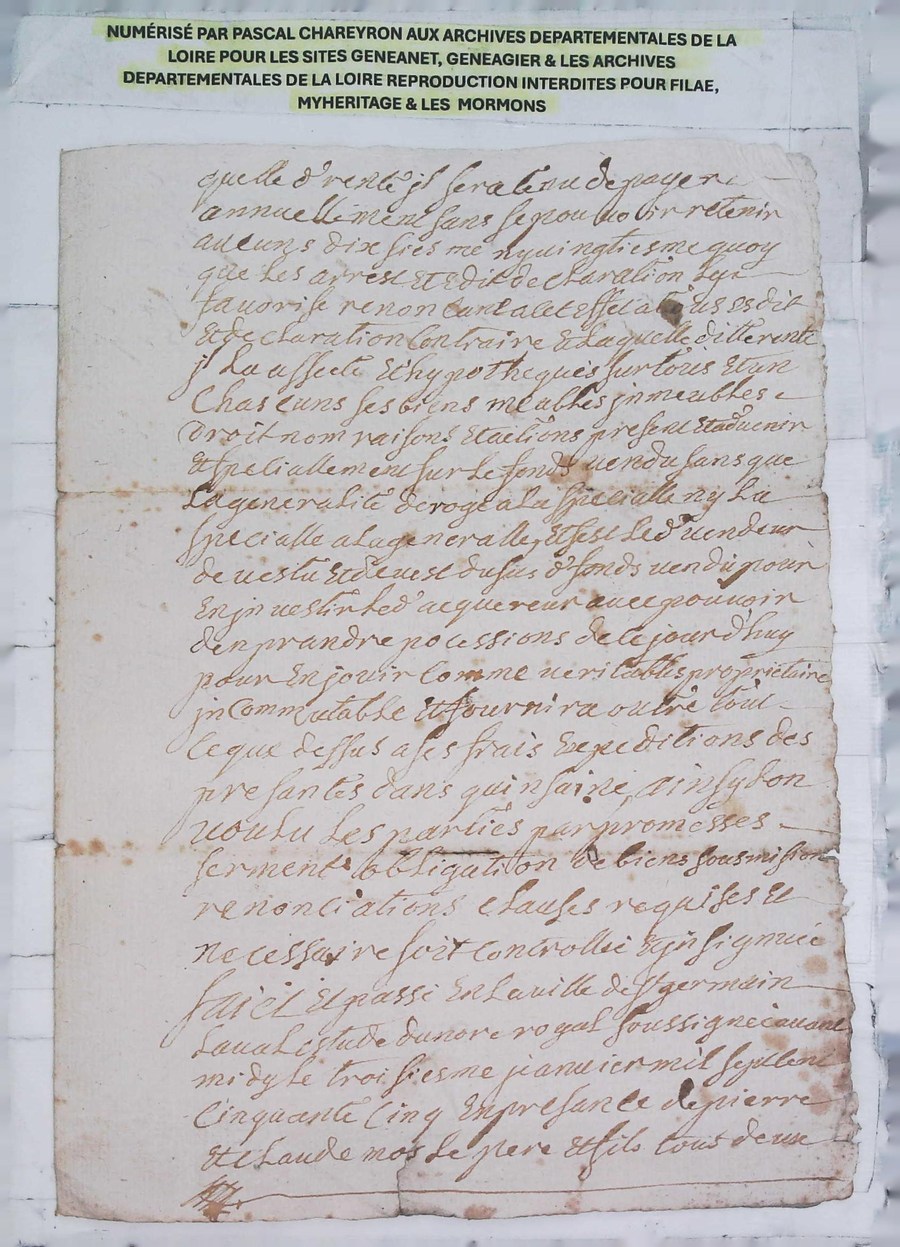 NUMÉRISÉ PAR PASCAL CHAREYRON AUX ARCHIVES DEPARTEMENTALES DE LA
LOIRE POUR LES SITES GENEANET, GENEAGIER & LES ARCHIVES
DEPARTEMENTALES DE LA LOIRE REPRODUCTION INTERDITES POUR FILAE,
MYHERITAGE & LES MORMONS
quelle d' rente jl sera tenu de payer
annuellement sans se pouvoir retenir
aucuns dixsiesme ny vingtiesme quoy
que les arrest et edit declaration luy
favorise renoncant a cet effect a tous esdit
et declaration contraire et laquelle ditte rente
jl la affecté et hypothequés sur tous et un
chascuns ses biens meubles jnmeubles
droit nom raisons et actions present et advenir
et speciallement sur le fonds vendu sans que
la generalité deroge a la specialle ny la
specialle a la generalle, et s'est le d' vendeur
devestu et devest du sus d' fonds vendu pour
en jnvestir le d' acquereur avec pouvoir
den prandre pocessions de ce jourdhuy
pour en jouir comme veritables proprietaire
jncommutable et fournira outre tout
ce que dessus a ses frais expeditions des
presantes dans quinsaine, ainsy l'on
voulu les parties par promesses
serment obligation de biens sousmission
renonciations clauses requises et
necessaire soit controllé et jnsignué
faict et passé en la ville de St germain
laval estude du nore royal soussigné avant
midy le troisiesme jeanvier mil sept cent
cinquante cinq en presance de pierre
et claude mos le pere et fils tous deux